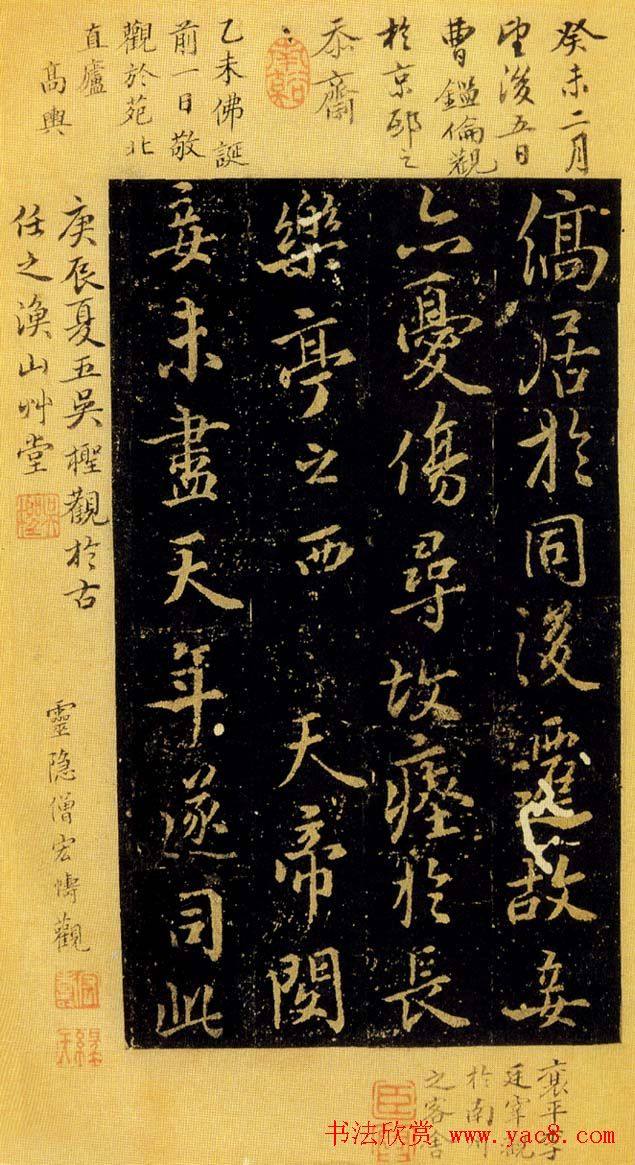 癸未二月
望後五日
曹鑑倫觀
於京邸之
忝齋
乙未佛誕
前一日敬
觀於苑北
直廬
高輿
縞居於同後遷故妾
亦憂傷尋故瘞於長
樂亭之西 天帝閔
妾未盡天年遂司此
庚辰夏五吳檉觀於古
任之漁山艸堂
靈隐僧宏觀
襄平李
廷宰觀
於南
之客舍
书法欣赏 www.yac8.com